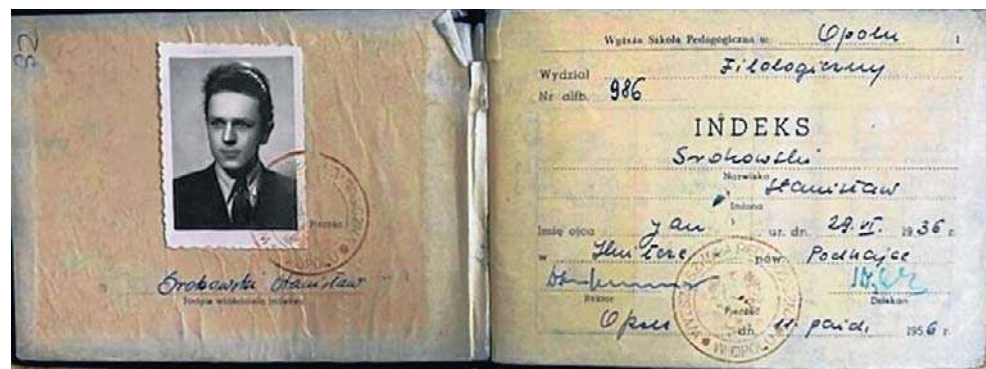 32
Pieczęć
Srokowski Stanisław
Podpis właściciela indeksu
Wyższa Szkoła Pedagogiczna w Opolu 1
Wydział Filologiczny
Nr alfb. 986
INDEKS
Srokowski
Nazwisko
Stanisław
Imiona
Imię ojca Jan ur. dn. 29. VI. 1936 r.
w Hnilcze pow. Podhajce
Rektor Pieczęć Dziekan
Opole dn. 11. paźdz. 1956 r.